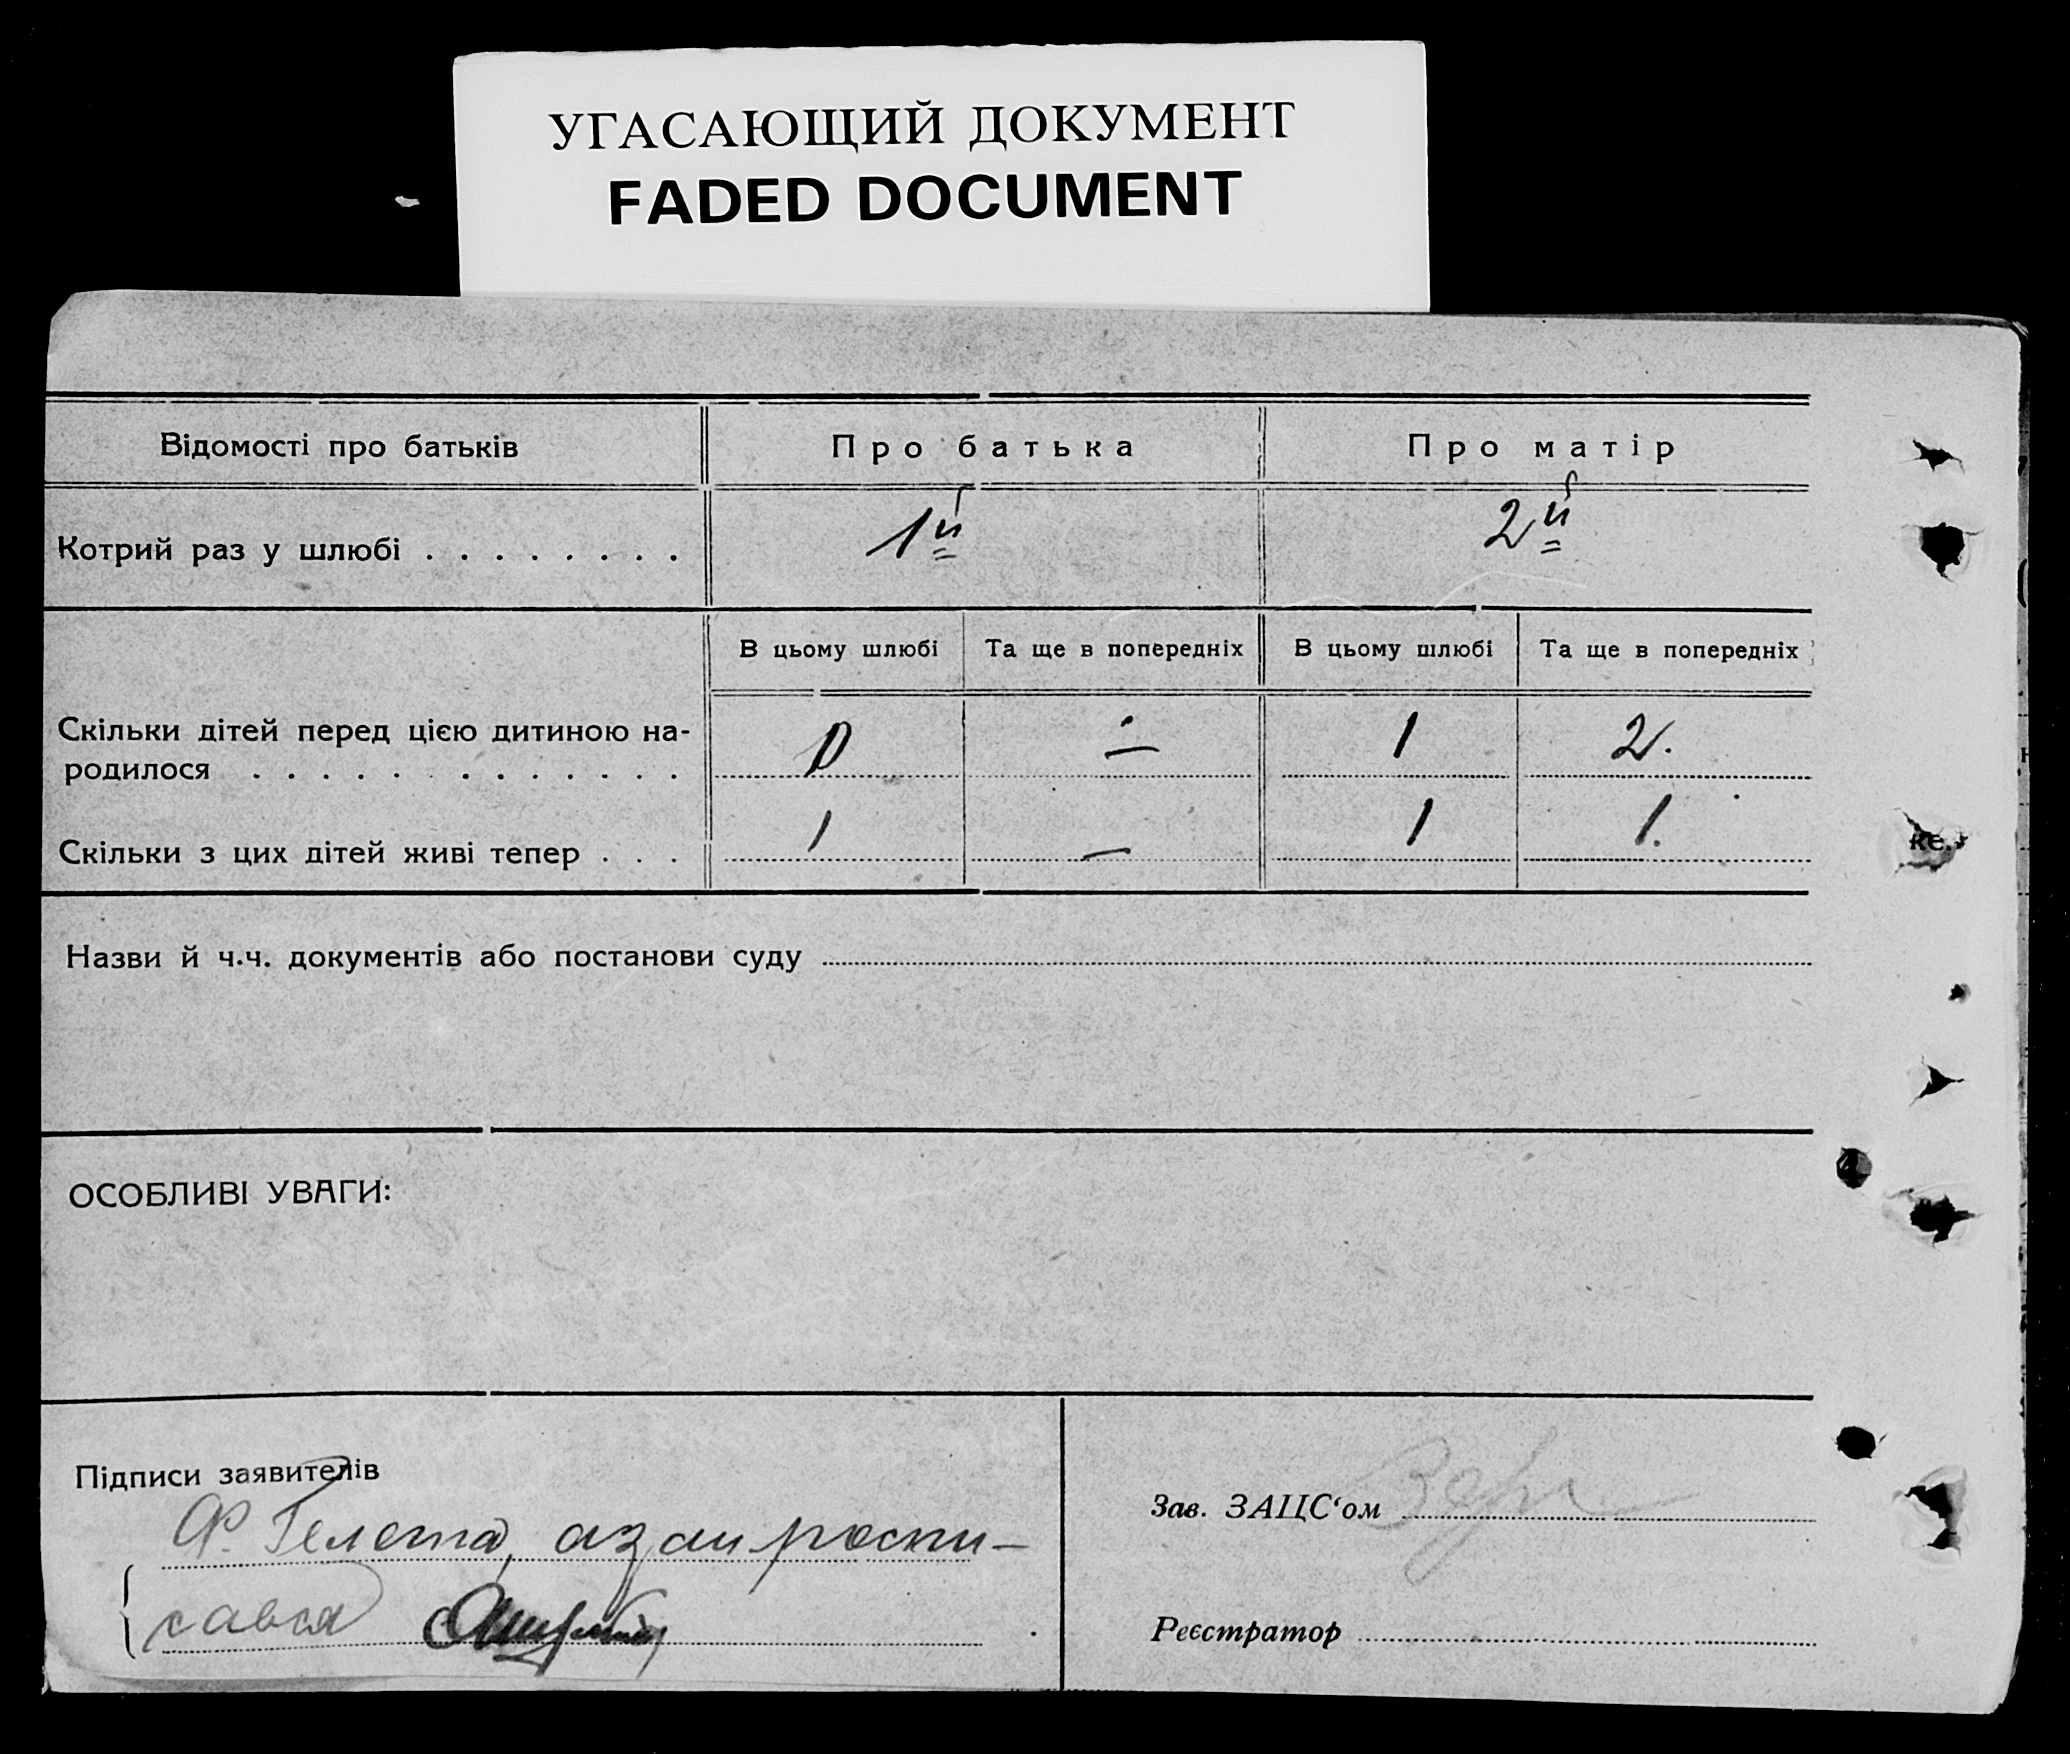 УГАСАЮЩИЙ ДОКУМЕНТ
FADED DOCUMENT
Відомості про батьків Про батька Про матір
Котрий раз у шлюбі . . . . . . . . 1й 2й
В цьому шлюбі Та ще в попередніх В цьому шлюбі Та ще в попередніх
Скільки дітей перед цією дитиною на-
родилося . . . . . . . . . . . . . — 1 2.
Скільки з цих дітей живі тепер . . . 1 — 1 1.
ке.
Назви й ч.ч. документів або постанови суду
ОСОБЛИВІ УВАГИ:
Підписи заявителів
Ф. Гелета, а за роспи-
сався
Зав. ЗАЦС‘ом
Реєстратор